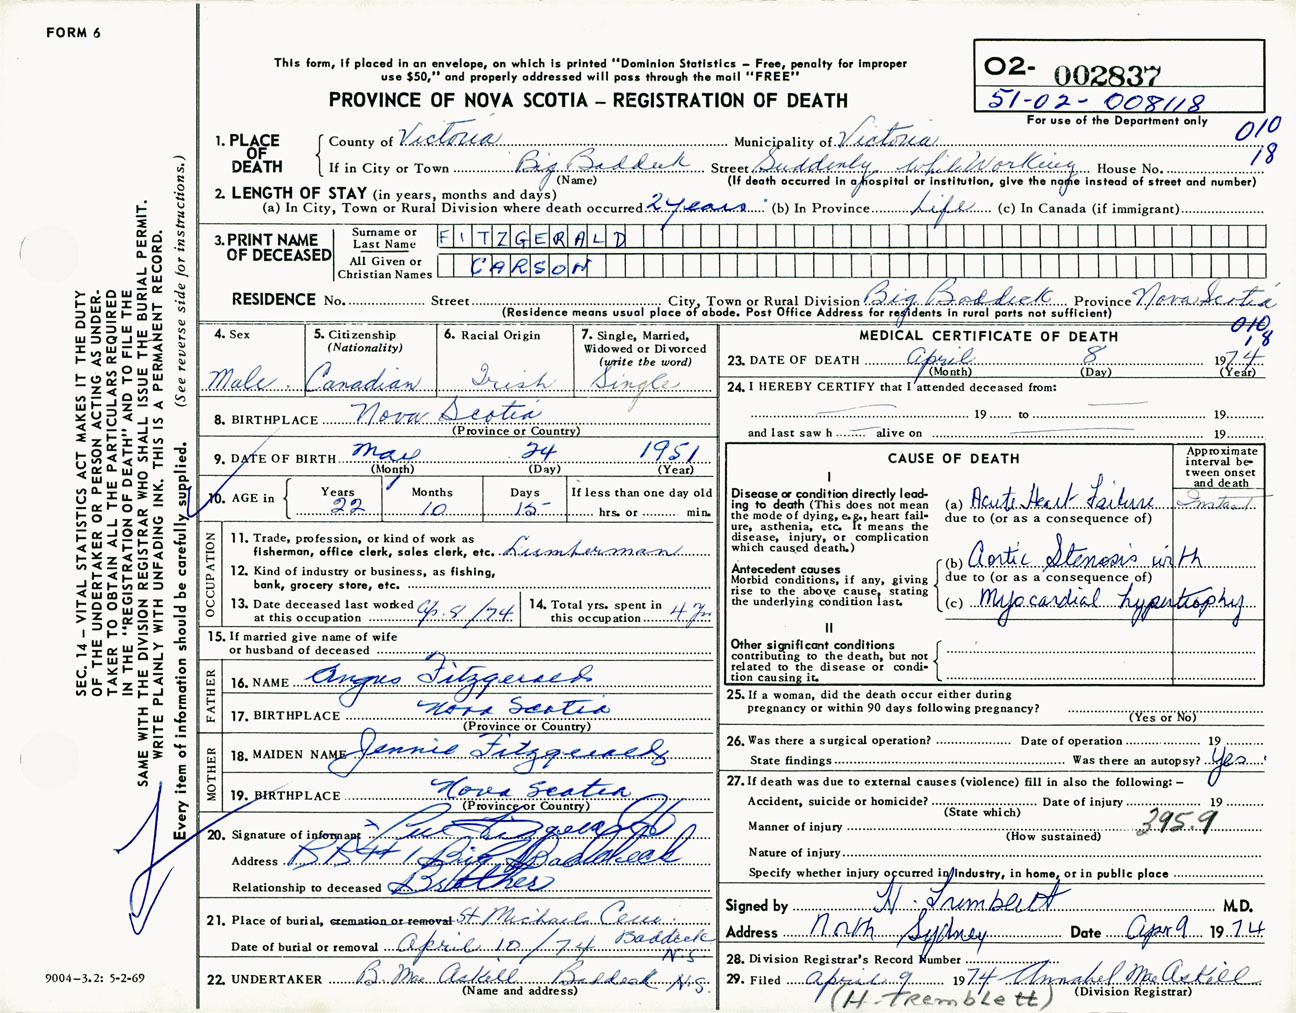 FORM 6
This form, if placed in an envelope, on which is printed "Dominion Statistics – Free, penalty for improper
use $50," and properly addressed will pass through the mail "FREE"
PROVINCE OF NOVA SCOTIA – REGISTRATION OF DEATH
02- 002837
51-02- 008118
For use of the Department only
010
18
1. PLACE OF DEATH
County of Victoria Municipality of Victoria
If in City or Town Big Baddeck Street Suddenly while Working House No.
(Name) (If death occurred in a hospital or institution, give the name instead of street and number)
2. LENGTH OF STAY (in years, months and days)
(a) In City, Town or Rural Division where death occurred 2 years (b) In Province Life (c) In Canada (if immigrant)
3. PRINT NAME OF DECEASED
Surname or Last Name FITZGERALD
All Given or Christian Names CARSON
RESIDENCE No. Street City, Town or Rural Division Big Baddeck Province Nova Scotia
(Residence means usual place of abode. Post Office Address for residents in rural parts not sufficient)
010
18
4. Sex
Male
5. Citizenship
(Nationality)
Canadian
6. Racial Origin
Irish
7. Single, Married,
Widowed or Divorced
(write the word)
Single
8. BIRTHPLACE Nova Scotia
(Province or Country)
9. DATE OF BIRTH May 24 1951
(Month) (Day) (Year)
10. AGE in Years Months Days If less than one day old
22 10 15 hrs. or min.
OCCUPATION
11. Trade, profession, or kind of work as
fisherman, office clerk, sales clerk, etc. Lumberman
12. Kind of industry or business, as fishing,
bank, grocery store, etc.
13. Date deceased last worked
at this occupation Ap. 8/74
14. Total yrs. spent in
this occupation 4 Yr
15. If married give name of wife
or husband of deceased
FATHER
16. NAME Angus Fitzgerald
17. BIRTHPLACE Nova Scotia
(Province or Country)
MOTHER
18. MAIDEN NAME Jennie Fitzgerald
19. BIRTHPLACE Nova Scotia
(Province or Country)
20. Signature of informant Fitzgerald
Address RR#1 Big Baddeck
Relationship to deceased Brother
21. Place of burial, cremation or removal St Michaels Cem.
Baddeck
Date of burial or removal April 10/74 N.S.
22. UNDERTAKER B. MacAskill Baddeck N.S.
(Name and address)
MEDICAL CERTIFICATE OF DEATH
23. DATE OF DEATH April 8 1974
(Month) (Day) (Year)
24. I HEREBY CERTIFY that I attended deceased from:
19 to 19
and last saw h alive on 19
CAUSE OF DEATH
Approximate
interval be-
tween onset
and death
I
Disease or condition directly lead-
ing to death (This does not mean
the mode of dying, e.g., heart fail-
ure, asthenia, etc. It means the
disease, injury, or complication
which caused death.)
(a) Acute Heart Failure Instant
due to (or as a consequence of)
Antecedent causes
Morbid conditions, if any, giving
rise to the above cause, stating
the underlying condition last.
(b) Aortic Stenosis with
due to (or as a consequence of)
(c) Myocardial hypertrophy
II
Other significant conditions
contributing to the death, but not
related to the disease or condi-
tion causing it.
25. If a woman, did the death occur either during
pregnancy or within 90 days following pregnancy?
(Yes or No)
26. Was there a surgical operation? Date of operation 19
State findings Was there an autopsy? Yes
27. If death was due to external causes (violence) fill in also the following: –
Accident, suicide or homicide? Date of injury 19
(State which)
Manner of injury 395.9
(How sustained)
Nature of injury
Specify whether injury occurred in industry, in home, or in public place
Signed by H. Tremblett M.D.
Address North Sydney Date Apr 9 1974
28. Division Registrar's Record Number
29. Filed April 9 1974 Annabel MacAskill
(Division Registrar)
(H. Tremblett)
SEC. 14 – VITAL STATISTICS ACT MAKES IT THE DUTY
OF THE UNDERTAKER OR PERSON ACTING AS UNDER-
TAKER TO OBTAIN ALL THE PARTICULARS REQUIRED
IN THE "REGISTRATION OF DEATH" AND TO FILE THE
SAME WITH THE DIVISION REGISTRAR WHO SHALL ISSUE THE BURIAL PERMIT.
WRITE PLAINLY WITH UNFADING INK. THIS IS A PERMANENT RECORD.
Every item of information should be carefully supplied. (See reverse side for instructions.)
9004-3.2: 5-2-69